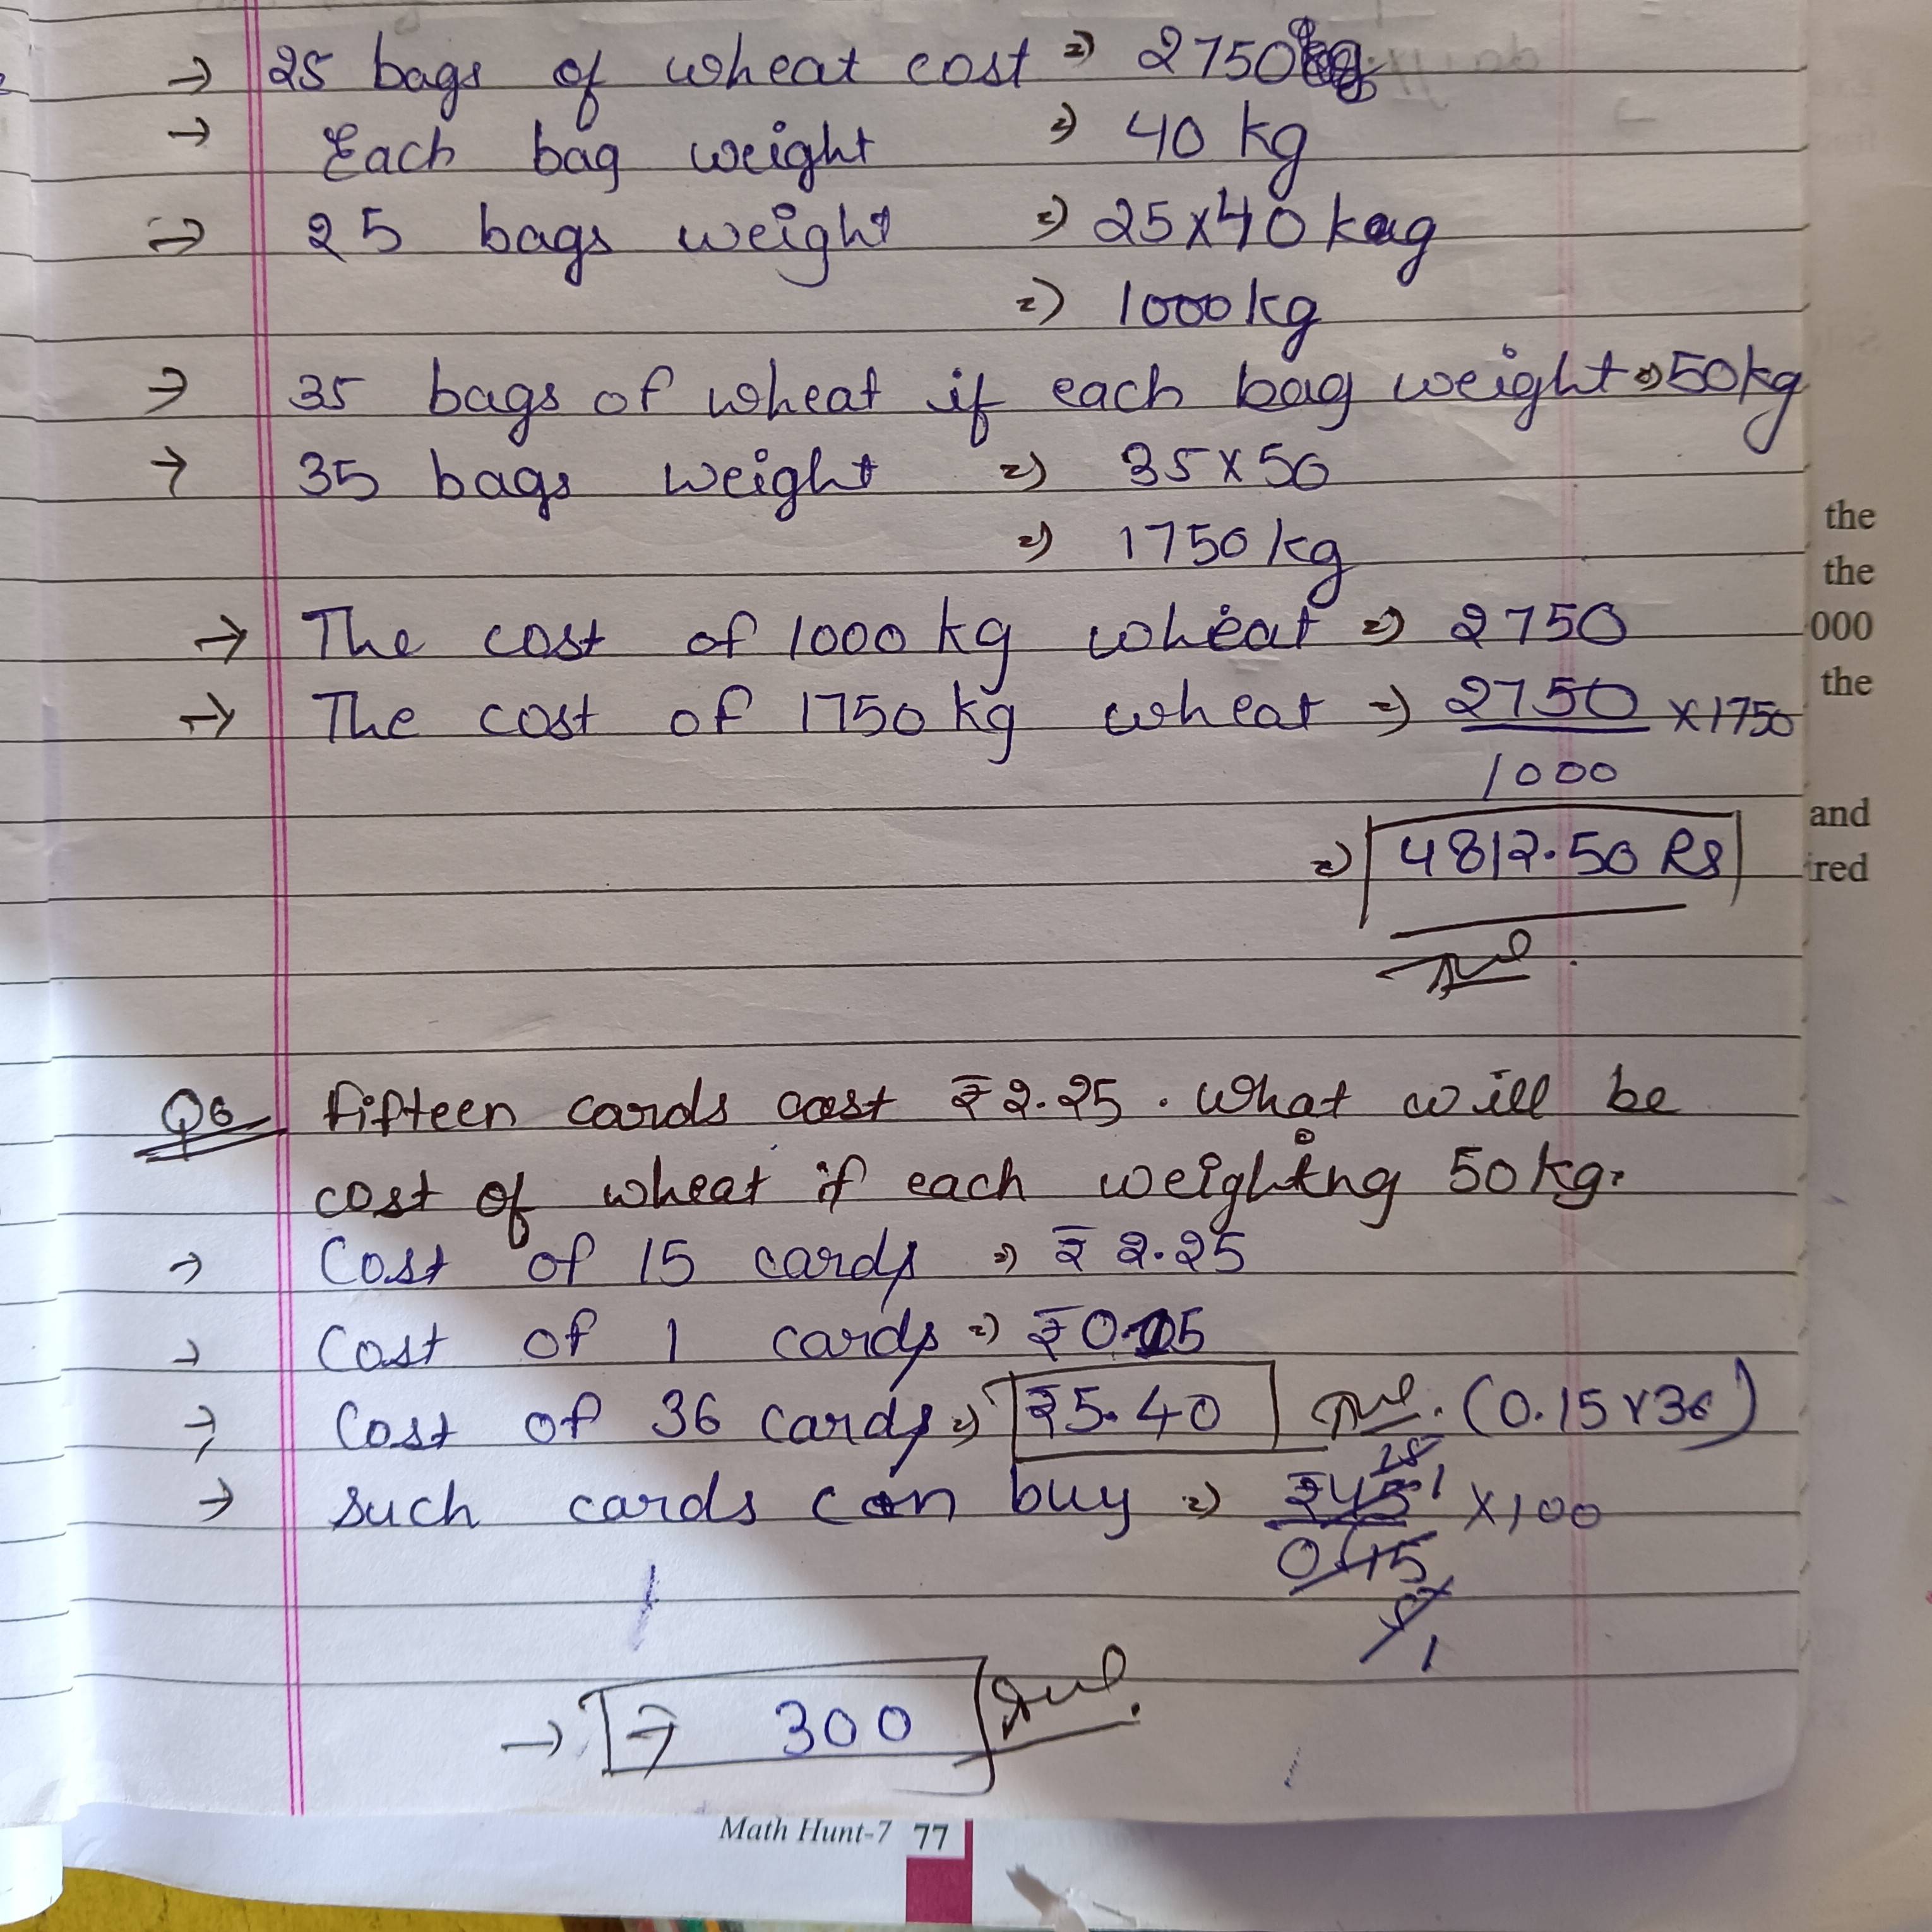 → 25 bags of wheat cost ⇒ 2750
→ Each bag weight ⇒ 40 kg
⇒ 25 bags weight ⇒ 25×40 kg
⇒ 1000 kg
→ 35 bags of wheat if each bag weight ⇒ 50 kg
→ 35 bags weight ⇒ 35×50
⇒ 1750 kg
→ The cost of 1000 kg wheat ⇒ 2750
→ The cost of 1750 kg wheat ⇒ 2750/1000 ×1750
⇒ 4812.50 Rs
Ans
Q6 Fifteen cards cost ₹2.25. What will be
cost of wheat if each weighting 50 kg.
→ Cost of 15 cards ⇒ ₹2.25
→ Cost of 1 cards ⇒ ₹0.15
→ Cost of 36 cards ⇒ ₹5.40 Ans. (0.15×36)
→ such cards can buy ⇒ ₹45/0.15 ×100
→ ⇒ 300 Ans.
Math Hunt-7 77
the
the
000
the
and
ired